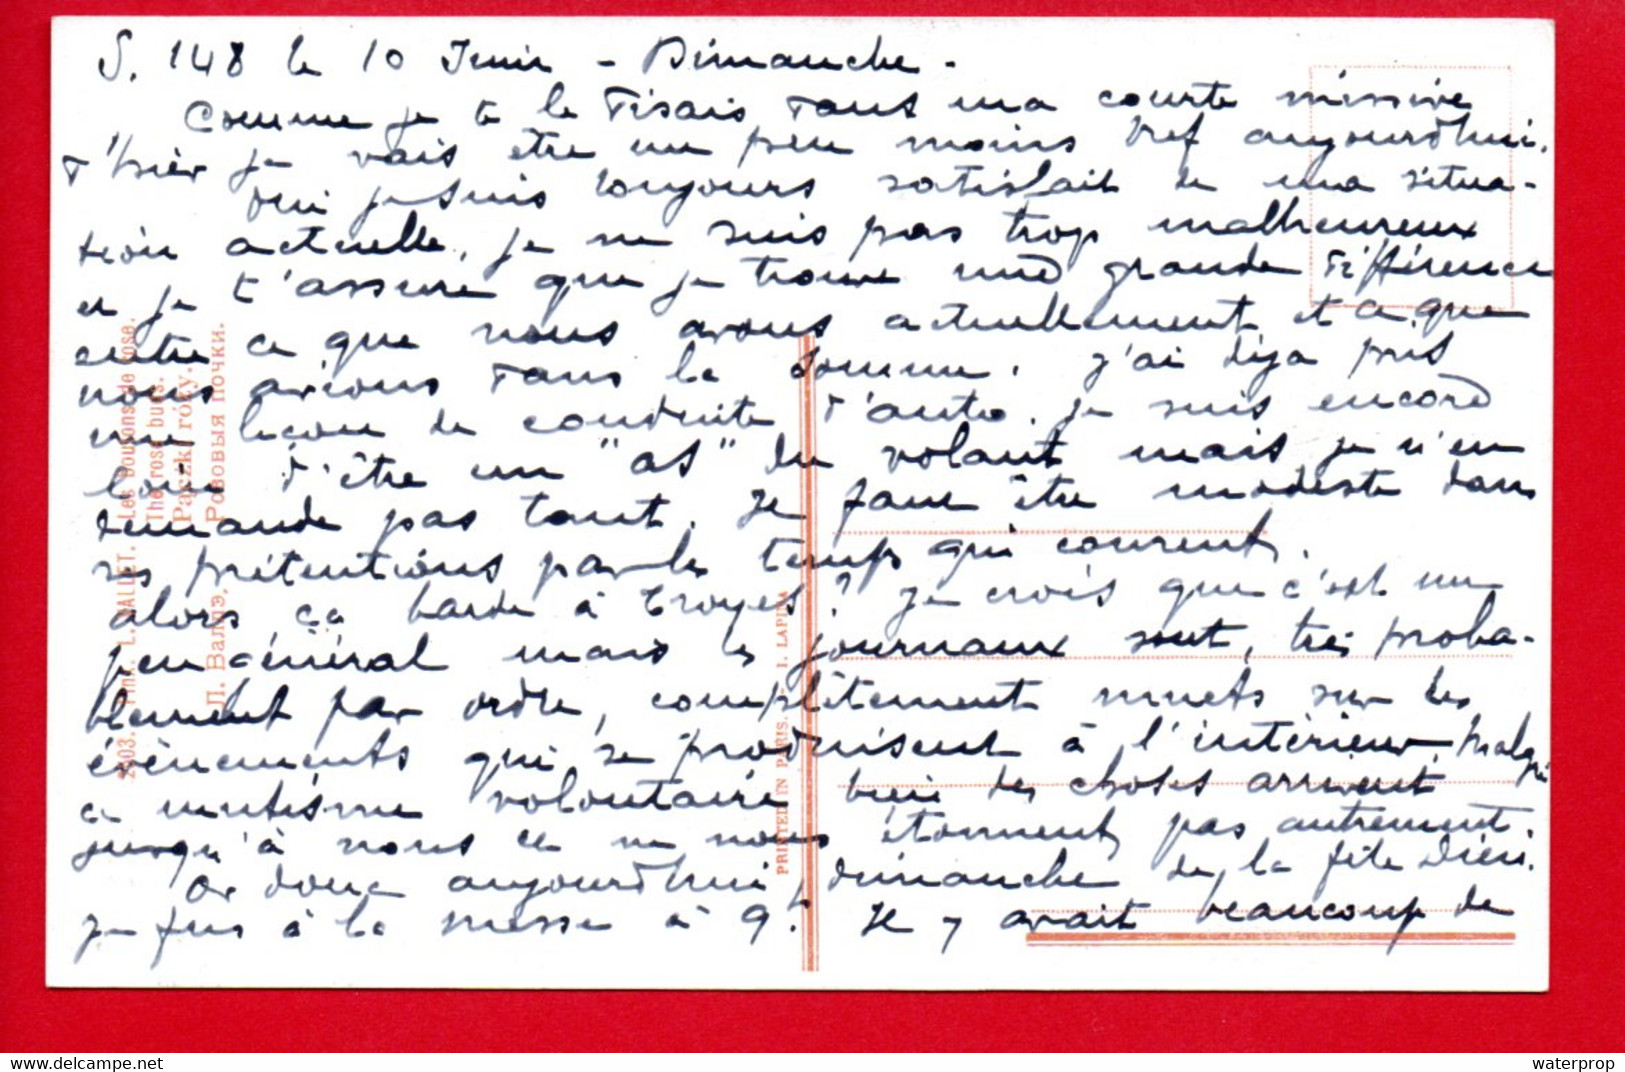 S. 148 le 10 Juin - Dimanche -
Comme je te le disais dans ma courte missive
d'hier je vais être un peu moins bref aujourd'hui.
Oui je suis toujours satisfait de ma situa-
tion actuelle, je ne suis pas trop malheureux
et je t'assure que je trouve une grande différence
entre ce que nous avons actuellement et ce que
nous avions dans la Somme. J'ai déja pris
une leçon de conduite d'auto. Je suis encore
loin d'être un "as" du volant mais je n'en
demande pas tant. Il faut être modeste dans
ses prétentions par les temps qui courent.
alors ça barde à Troyes? Je crois que c'est un
peu général mais les journaux sont, très proba-
blement par ordre, complètement muets sur les
évènements qui se produisent à l'intérieur. Malgré
ce mutisme volontaire bien des choses arrivent
jusqu'à nous et ne nous étonnent pas autrement.
Or donc aujourd'hui, dimanche de la fête Dieu.
je fus à la messe à 9h. Il y avait beaucoup de
2003. L. VALLET. Les boutons de rose.
The rose buds.
Pączki róży.
Л. Валлэ. Розовыя почки.
PRINTED IN PARIS. - I. LAPINA
waterprop